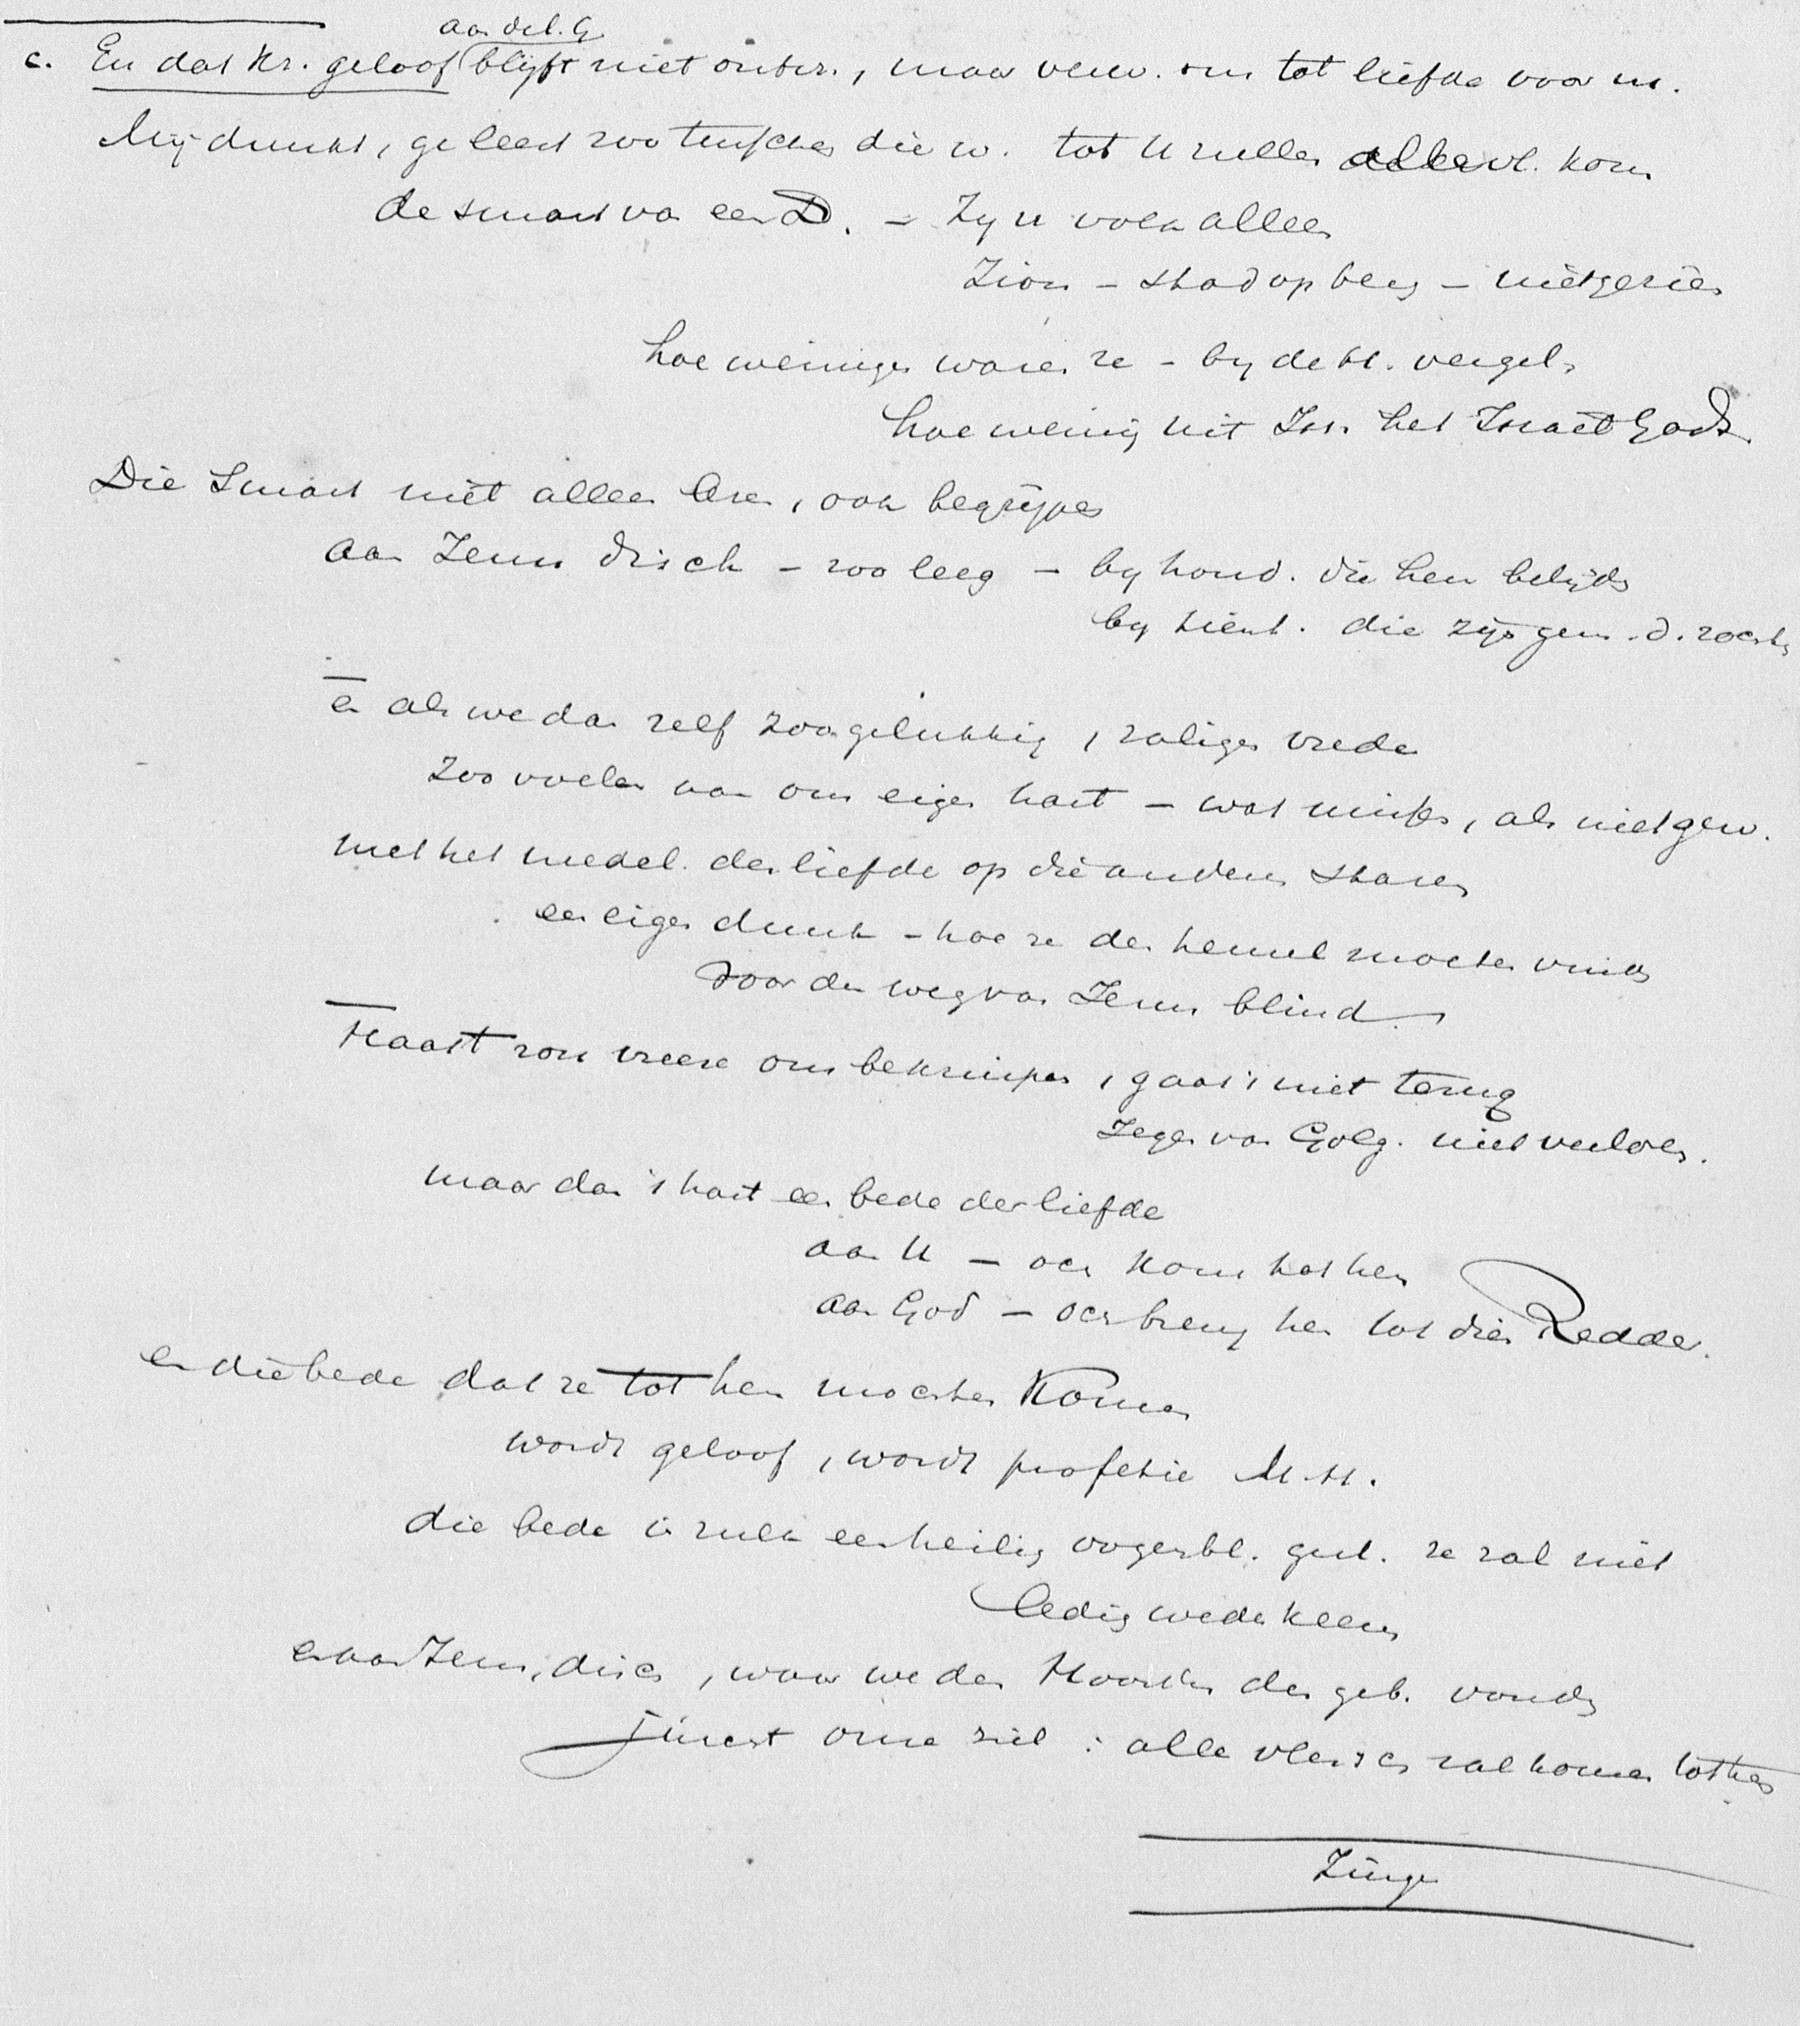 aan del. G.
c. En dat Kr. geloof blijft niet onbew., maar verw. ons tot liefde voor m.
Mij dunkt, ge leest zoo tusschen die w. tot U zullen alle vl. kom
de smart van een D. – Zij u volk alleen
Zion – stad op berg – niet gezien
hoe weinigen waren ze – bij de H. vergel.
hoe weinig uit Isr. het Israël Gods
Die Smart niet alleen lezen, ook begrijpen
aan Jezus disch – zoo leeg – bij hond. die hem belijden
bij tient. die zijn gem. d. zoeken
en als we dan zelf zoo gelukkig, zaligen vrede
zoo voelen aan ons eigen hart – wat missen, als niet gew.
met het medel. der liefde op die anderen staren
een eigen dunk – hoe ze den hemel moeten vinden
voor den weg van Jezus blind.
Haast zou vreeze ons bekruipen, gaat 't niet terug
Zege van Golg. niet verloren.
maar dan 't hart een bede der liefde
aan U – och kom tot hem
aan God – och breng hen tot dien Redder.
en die bede dat ze tot hem mochten komen
wordt geloof, wordt profetie M.H.
die bede in zulk een heilig oogenbl. gesl. ze zal niet
ledig wederkeeren
en aan Jezus, disch, waar we den Hoorder der geb. vonden
juicht onze ziel : alle vleesch zal komen tot hem
Zinge